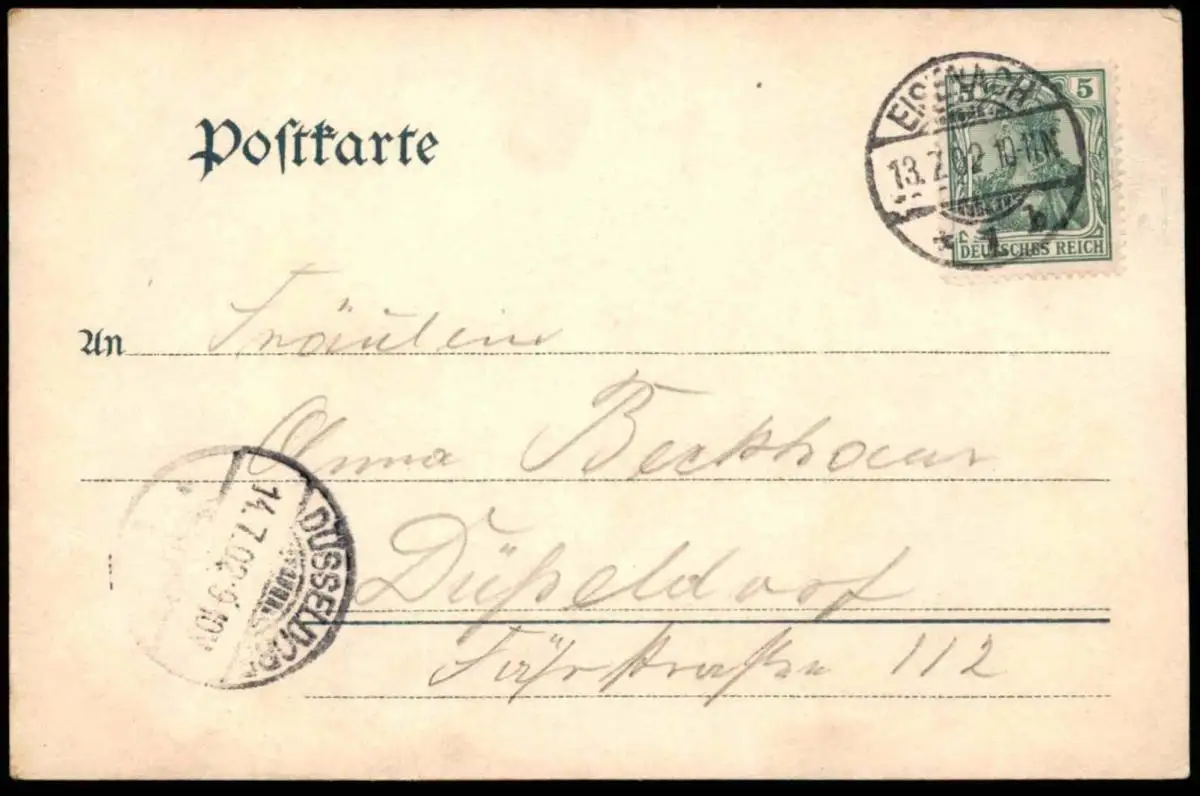 Postkarte
EISENACH
13.7.02 10-11N
* 1 b
5
DEUTSCHES REICH
An Fräulein
Anna Beckhaus
Düßeldorf
Fährstraße 112
DÜSSELDORF
14.7.02 9-10V